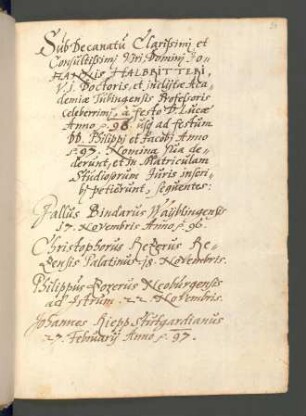 Sub Decanatu Clarissimj et
Consultissimj Viri Dominj Jo-
HANNIS HALBRITTERI,
V. J. Doctoris, et inclijtæ Aca-
demiæ Tubingensis Professoris
celeberrimj, à festo D. Lucæ
Anno 96 usq ad festum
DD. Philippj et Jacobj Anno
97. Nomina sua de-
derunt, et in Matriculam
Studiosorum Juris inscri-
bj petierunt, sequentes:
Gallus Bindarus Waijblingensis
17. Novembris Anno 96.
Christophorus Rezerus Re-
ensis Palatinus 18. Novembris.
Philippus Neoburgensis
ad Istrum. 22. Novembris.
Johannes Riepp Stutgardianus
27. Februarij Anno 97.